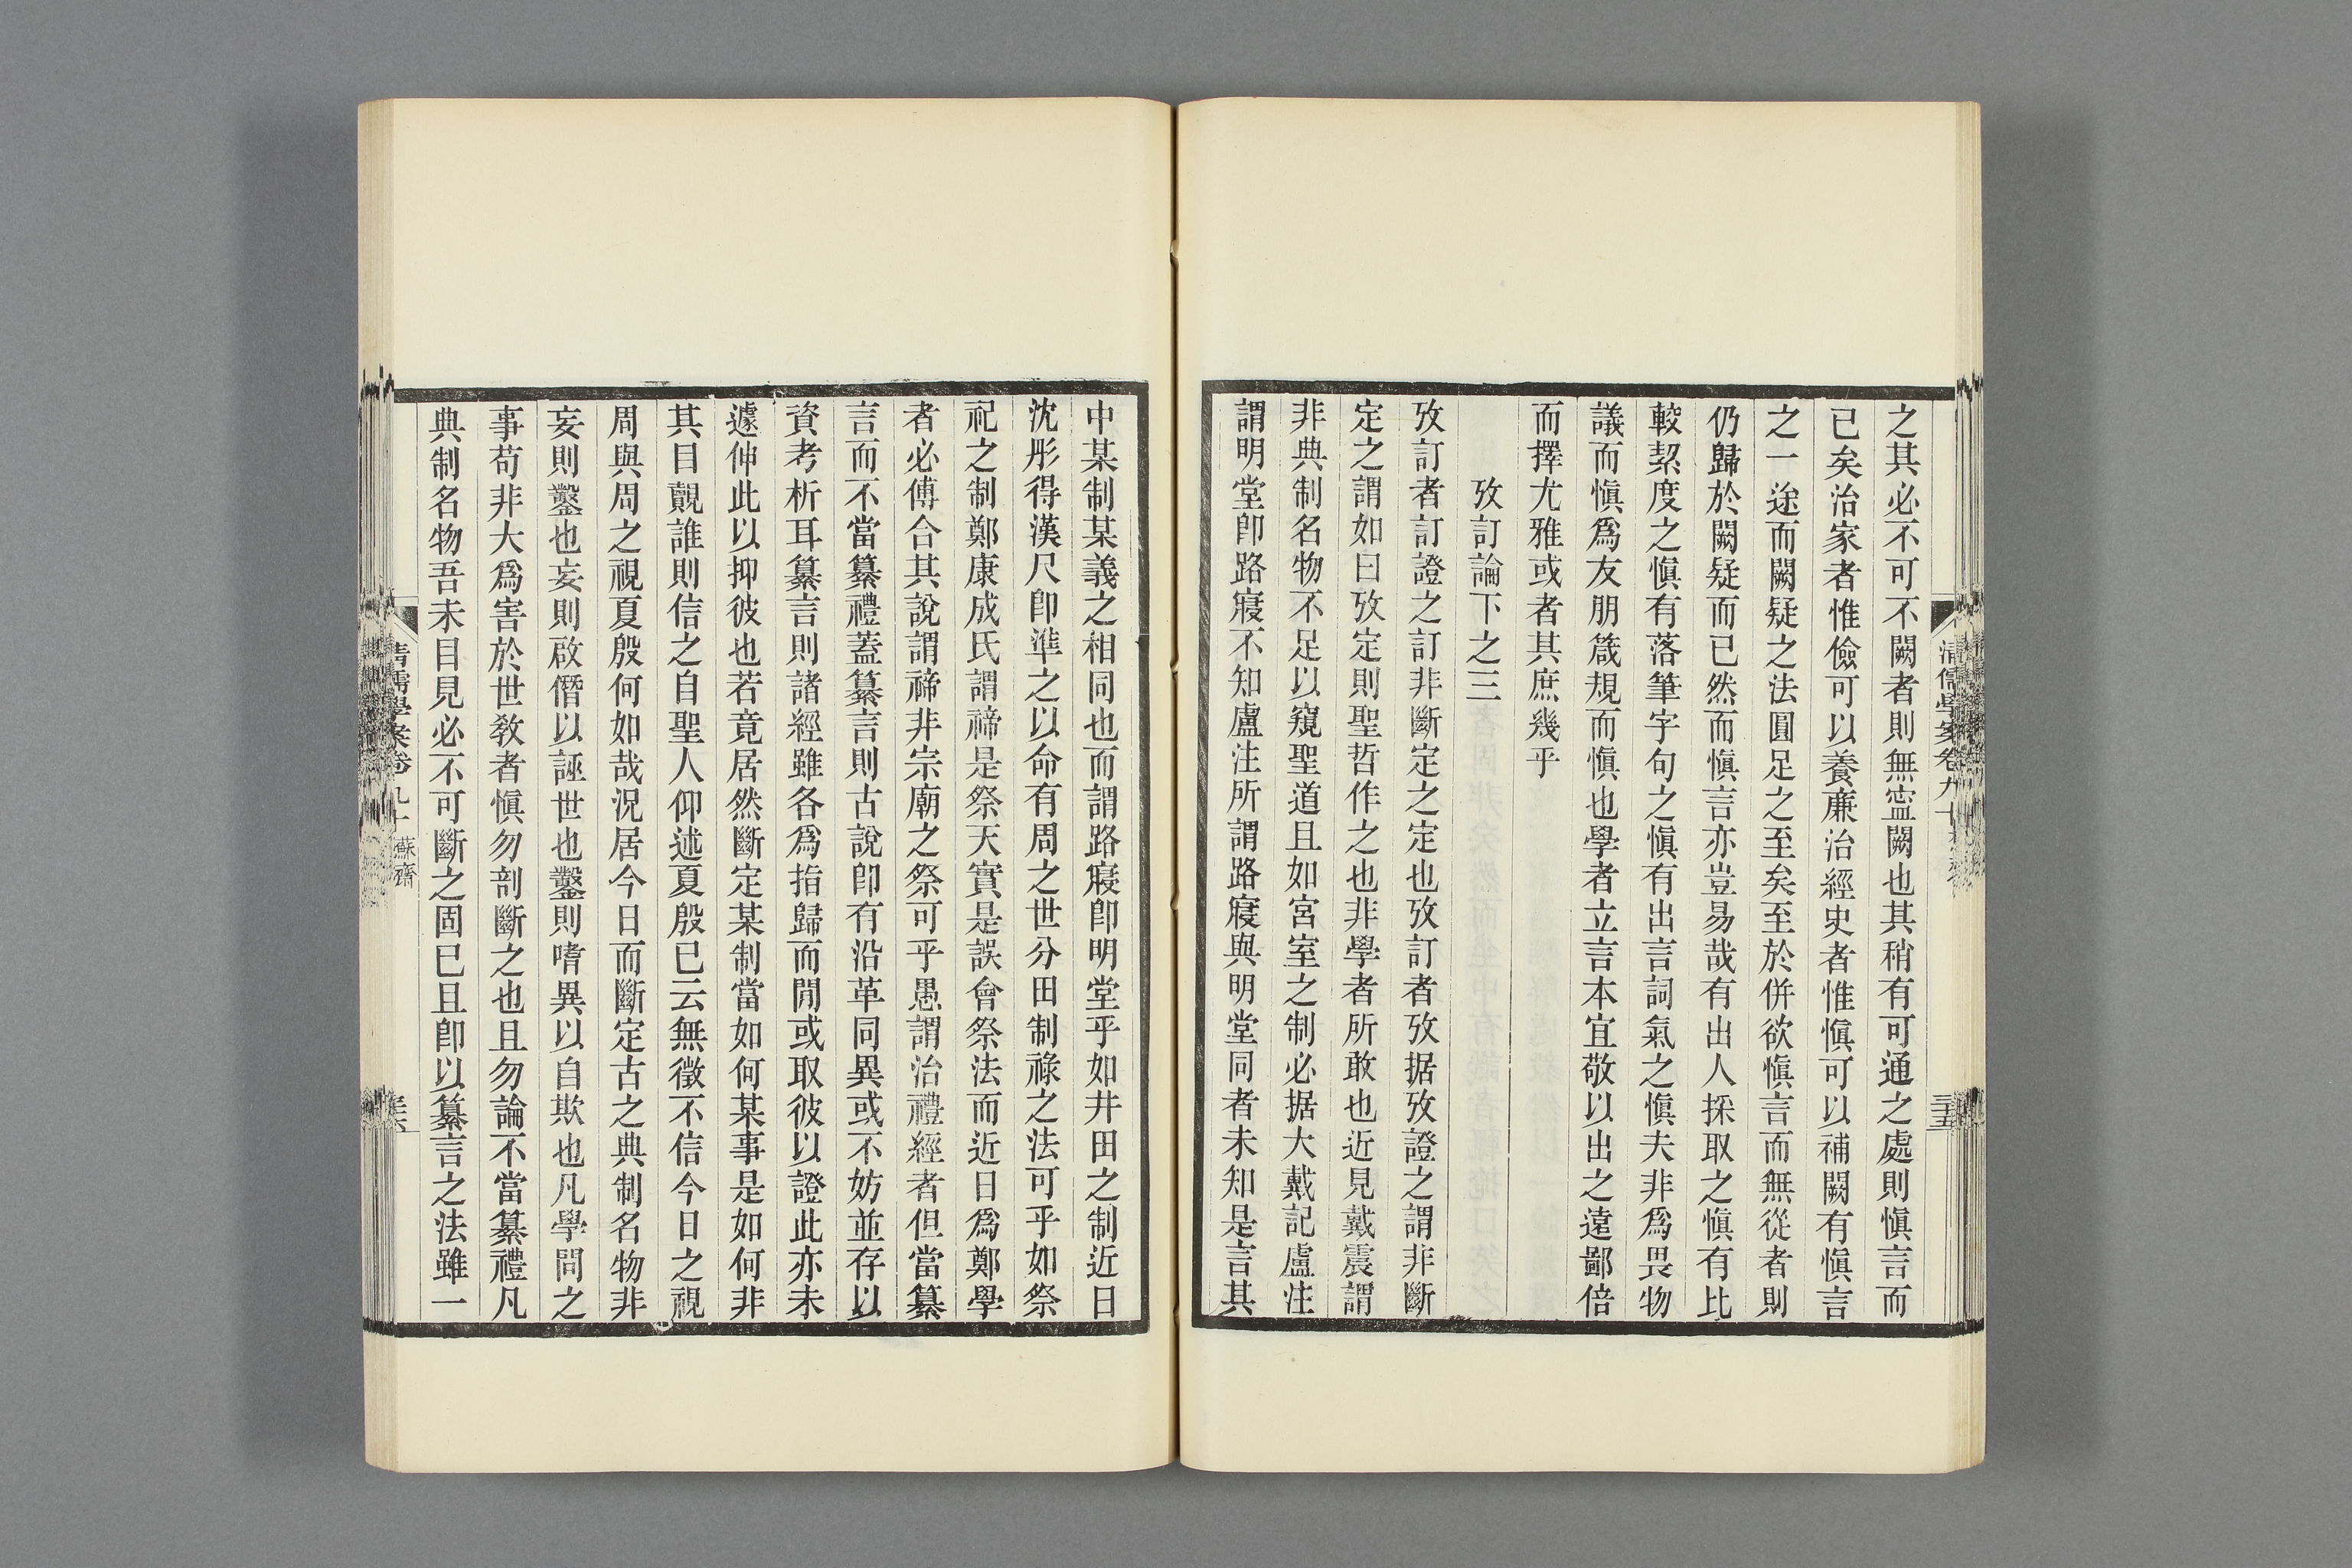 之其必不可不闕者則無寍闕也其稍有可通之處則愼言而
已矣治家者惟儉可以養廉治經史者惟愼可以補闕有愼言
之一途而闕疑之法圓足之至矣至於併欲愼言而無從者則
仍歸於闕疑而已然而愼言亦豈易哉有出人採取之愼有比
較絜度之愼有落筆字句之愼有出言詞氣之愼夫非爲畏物
議而愼爲友朋箴規而愼也學者立言本宜敬以出之遠鄙倍
而擇尤雅或者其庶幾乎
攷訂論下之三
攷訂者訂證之訂非斷定之定也攷訂者攷据攷證之謂非斷
定之謂如曰攷定則聖哲作之也非學者所敢也近見戴震謂
非典制名物不足以窺聖道且如宮室之制必据大戴記盧注
謂明堂卽路寢不知盧注所謂路寢與明堂同者未知是言其
清儒學案卷九十
三十五
中某制某義之相同也而謂路寢卽明堂乎如井田之制近日
沈彤得漢尺卽準之以命有周之世分田制祿之法可乎如祭
祀之制鄭康成氏謂禘是祭天實是誤會祭法而近日爲鄭學
者必傅合其說謂禘非宗廟之祭可乎愚謂治禮經者但當纂
言而不當纂禮蓋纂言則古說卽有沿革同異或不妨並存以
資考析耳纂言則諸經雖各爲指歸而閒或取彼以證此亦未
遽伸此以抑彼也若竟居然斷定某制當如何某事是如何非
其目覩誰則信之自聖人仰述夏殷已云無徵不信今日之視
周與周之視夏殷何如哉況居今日而斷定古之典制名物非
妄則鑿也妄則啟僭以誣世也鑿則嗜異以自欺也凡學問之
事苟非大爲害於世敎者愼勿剖斷之也且勿論不當纂禮凡
典制名物吾未目見必不可斷之固已且卽以纂言之法雖一
清儒學案卷九十 蘇齋